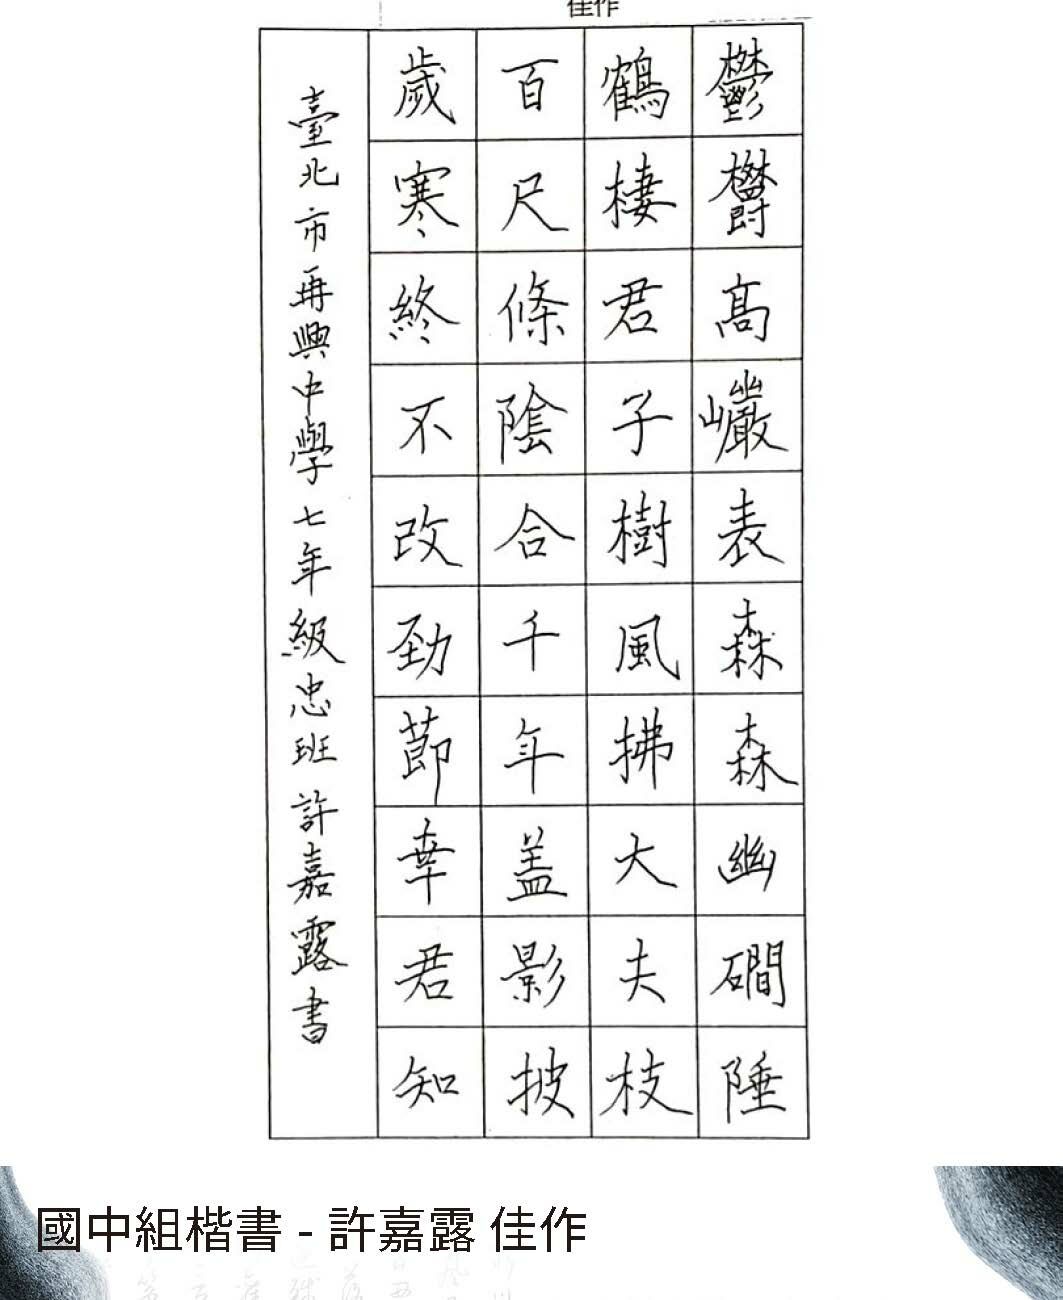 佳作
鬱鬱高巖表森森幽磵陲
鶴棲君子樹風拂大夫枝
百尺條陰合千年蓋影披
歲寒終不改勁節幸君知
臺北市再興中學七年級忠班許嘉露書
國中組楷書 - 許嘉露 佳作